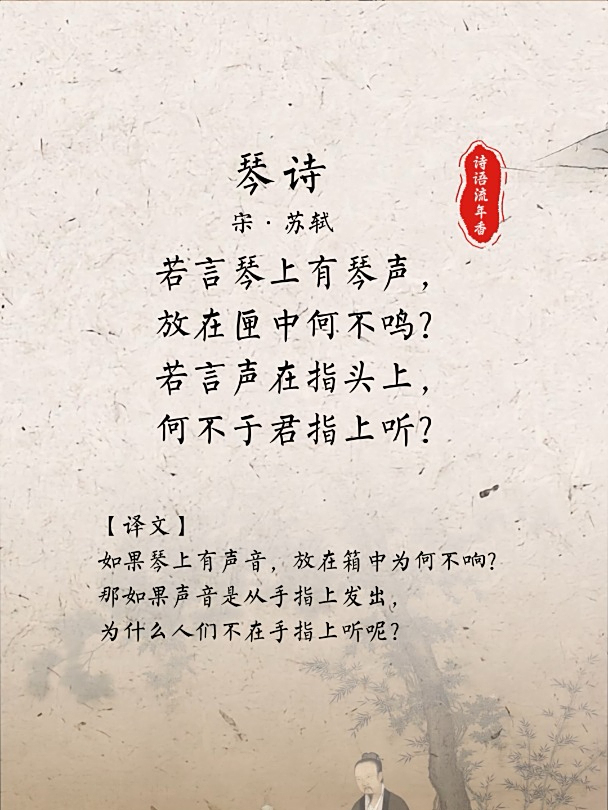 琴诗
宋·苏轼
诗语流年香
若言琴上有琴声，
放在匣中何不鸣？
若言声在指头上，
何不于君指上听？
【译文】
如果琴上有声音，放在箱中为何不响？
那如果声音是从手指上发出，
为什么人们不在手指上听呢？